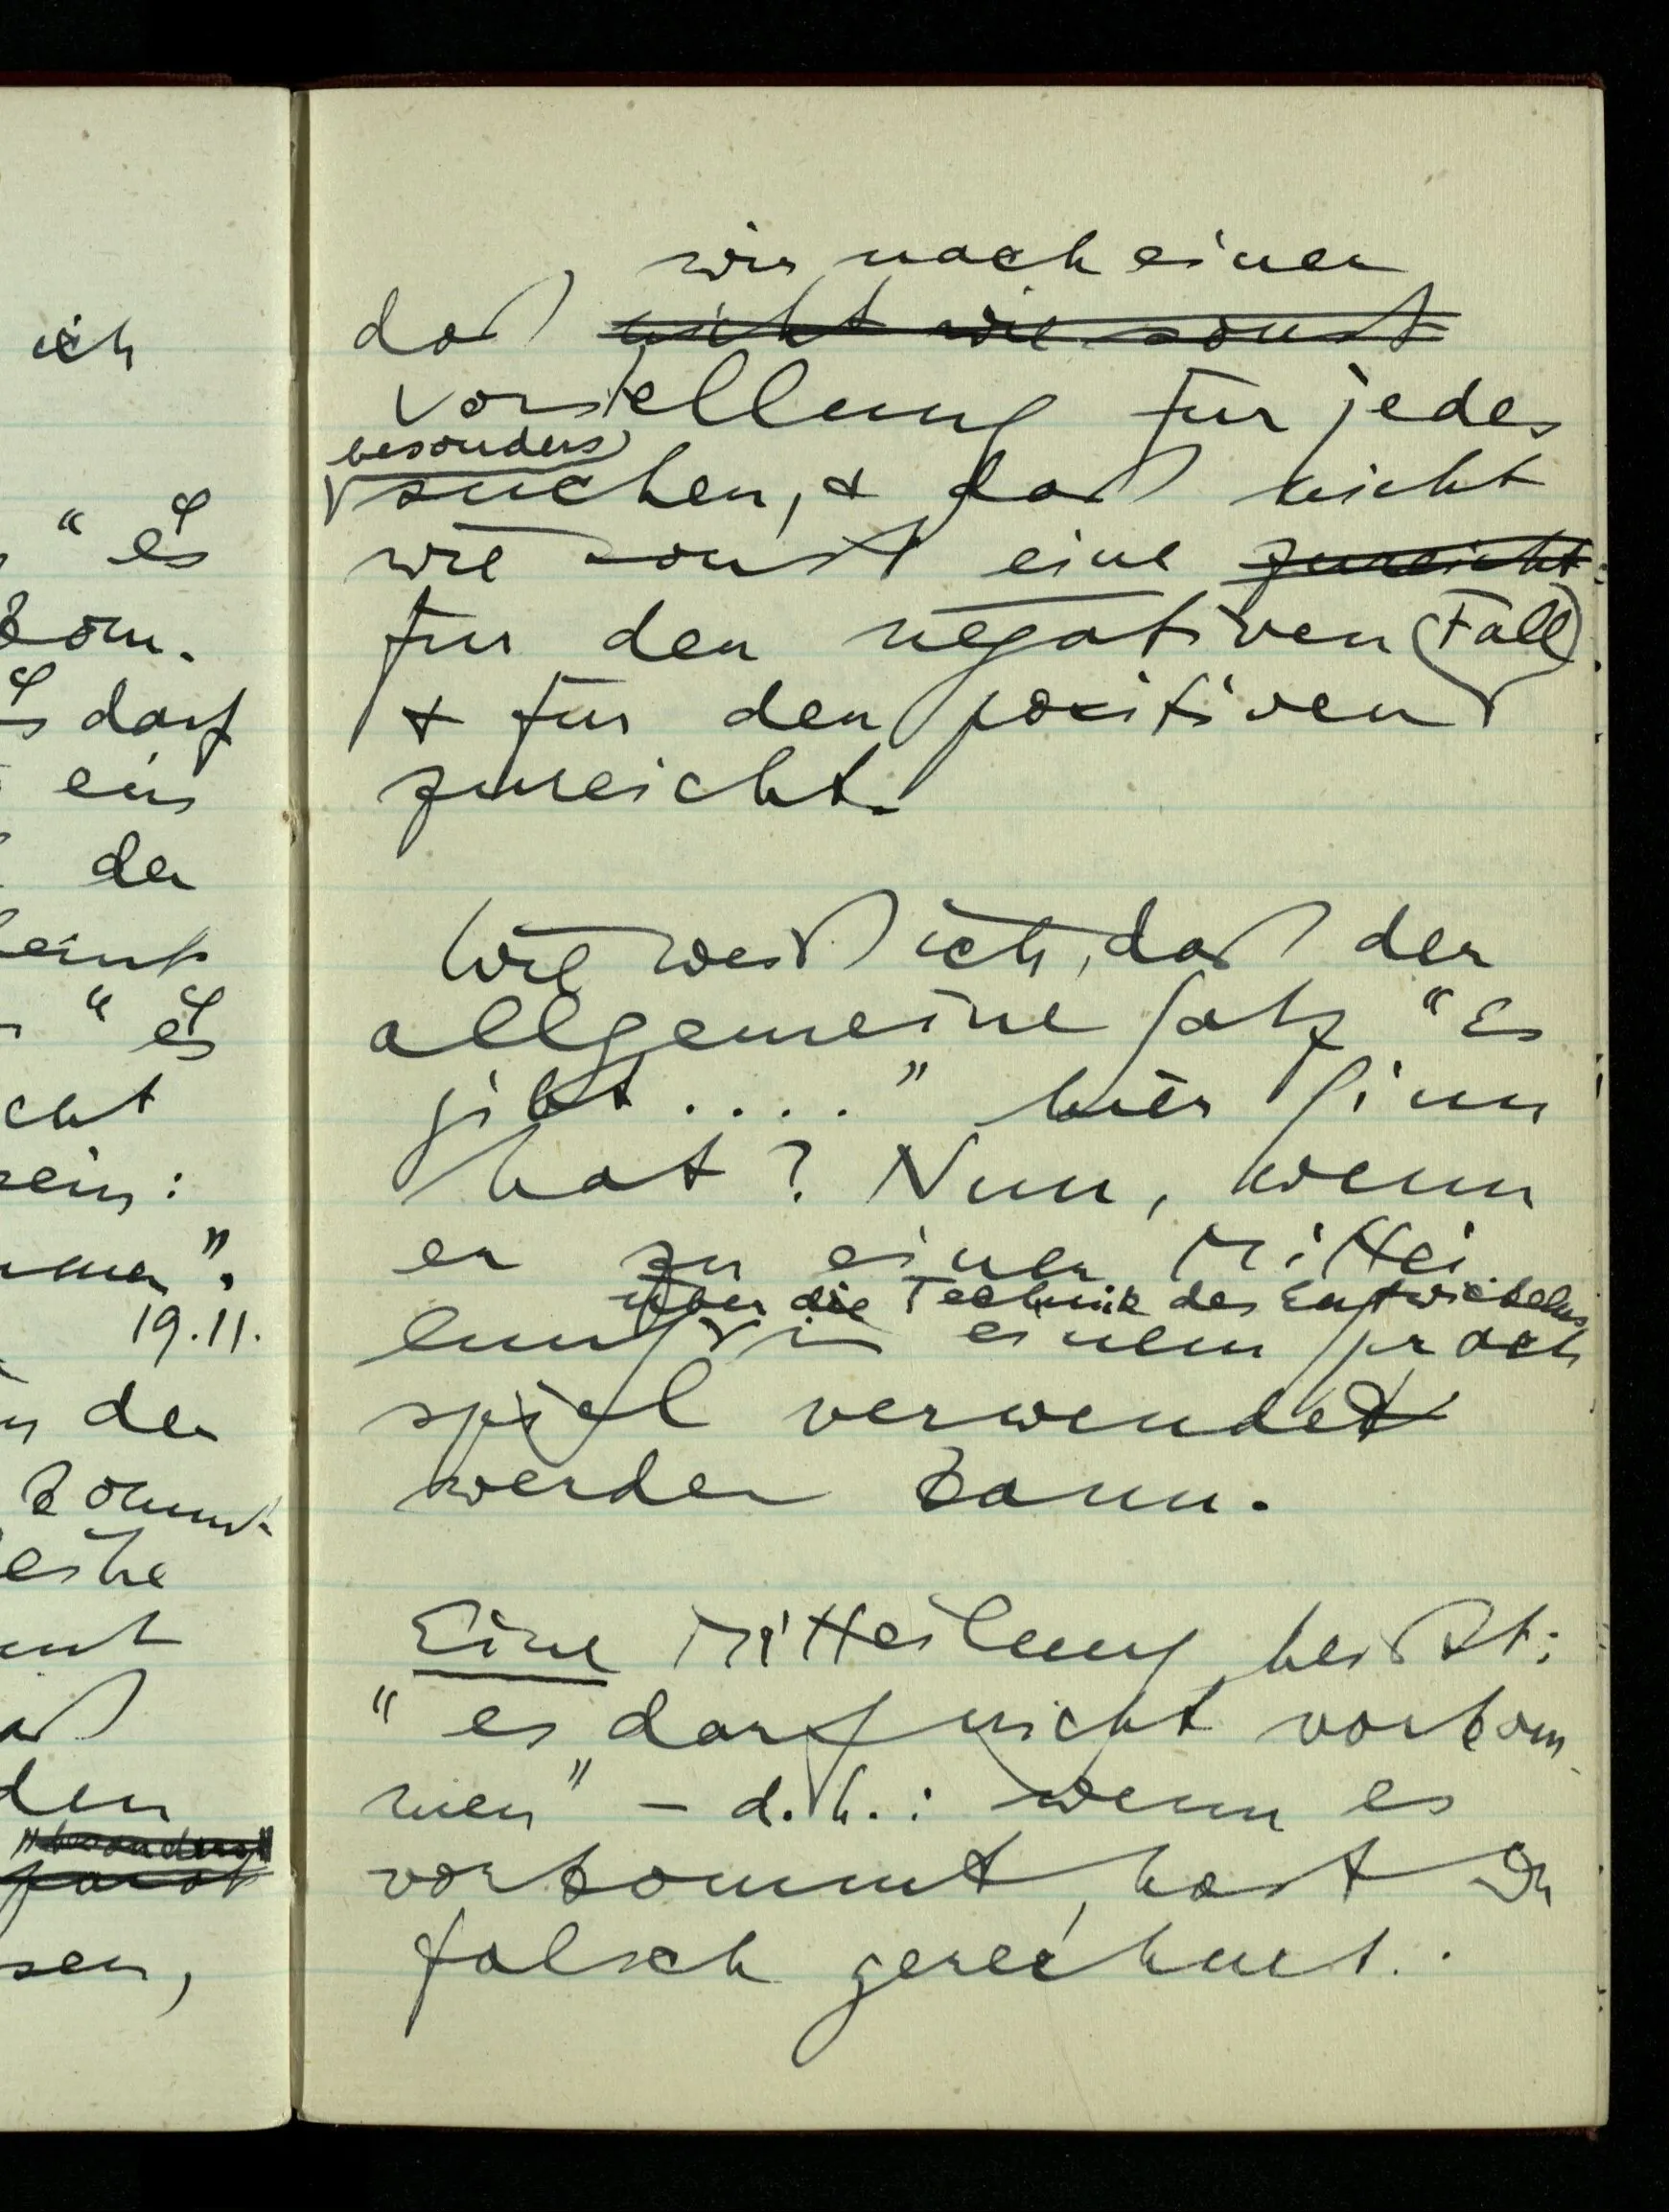 ich
" es
kom.
es darf
ein
der
" es
cht
sein:
".
19.11.
den
kommt
"besonders"
sen,
wir nach einer
daß nicht wie sonst
Vorstellung für jedes
besonders
suchen, & daß nicht
wie sonst eine zureicht
für den negativen Fall
& für den positiven
zureicht.
Wie weiß ich, daß der
allgemeine Satz "Es
gibt ...." hier Sinn
hat? Nun, wenn
er zu einer Mittei
über die Technik des Entwickelns
lung in einem Sprach
spiel verwendet
werden kann.
Eine Mitteilung heißt:
"es darf nicht vorkom
men" – d.h.: wenn es
vorkommt, hast Du
falsch gerechnet.